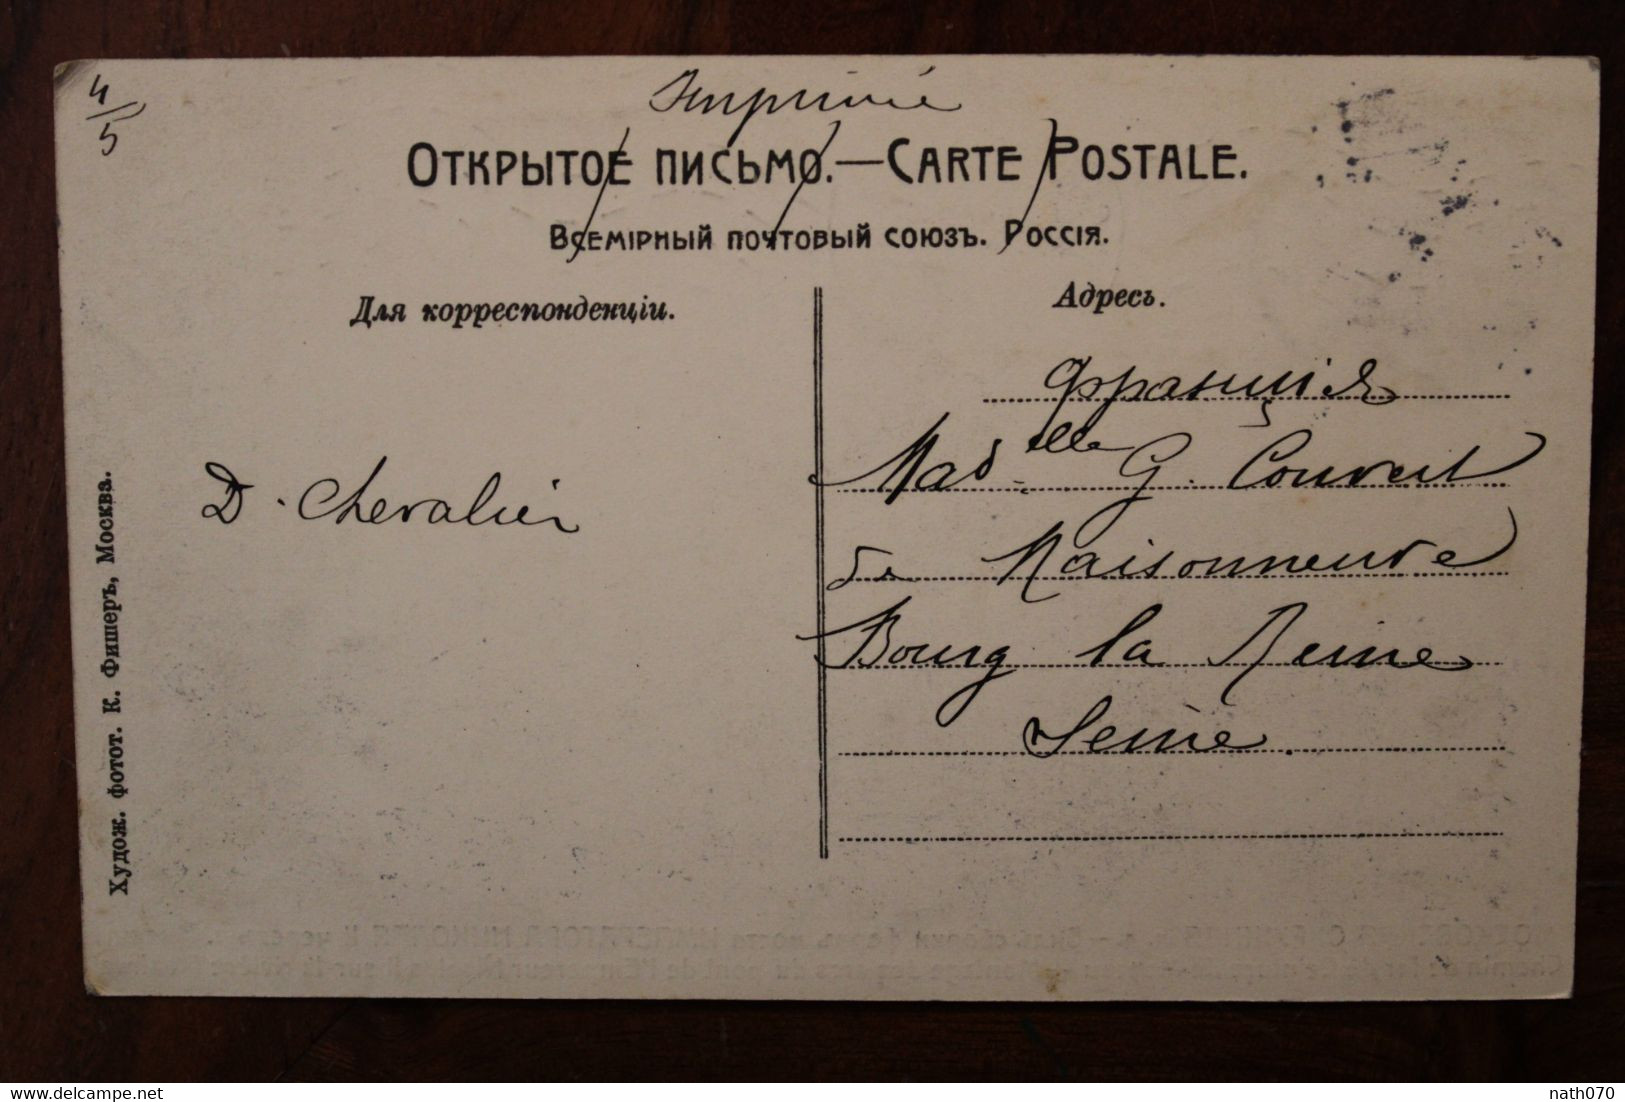 4/5
Imprimé
ОТКРЫТОЕ ПИСЬМО.—CARTE POSTALE.
ВСЕМІРНЫЙ ПОЧТОВЫЙ СОЮЗЪ. РОССІЯ.
Для корреспонденціи.
Адресъ.
Франція
Madelle G. Convert
D. Chevalier
de Maisonneuve
Bourg la Reine
Seine.
Худож. фотот. К. Фишеръ, Москва.
nath070